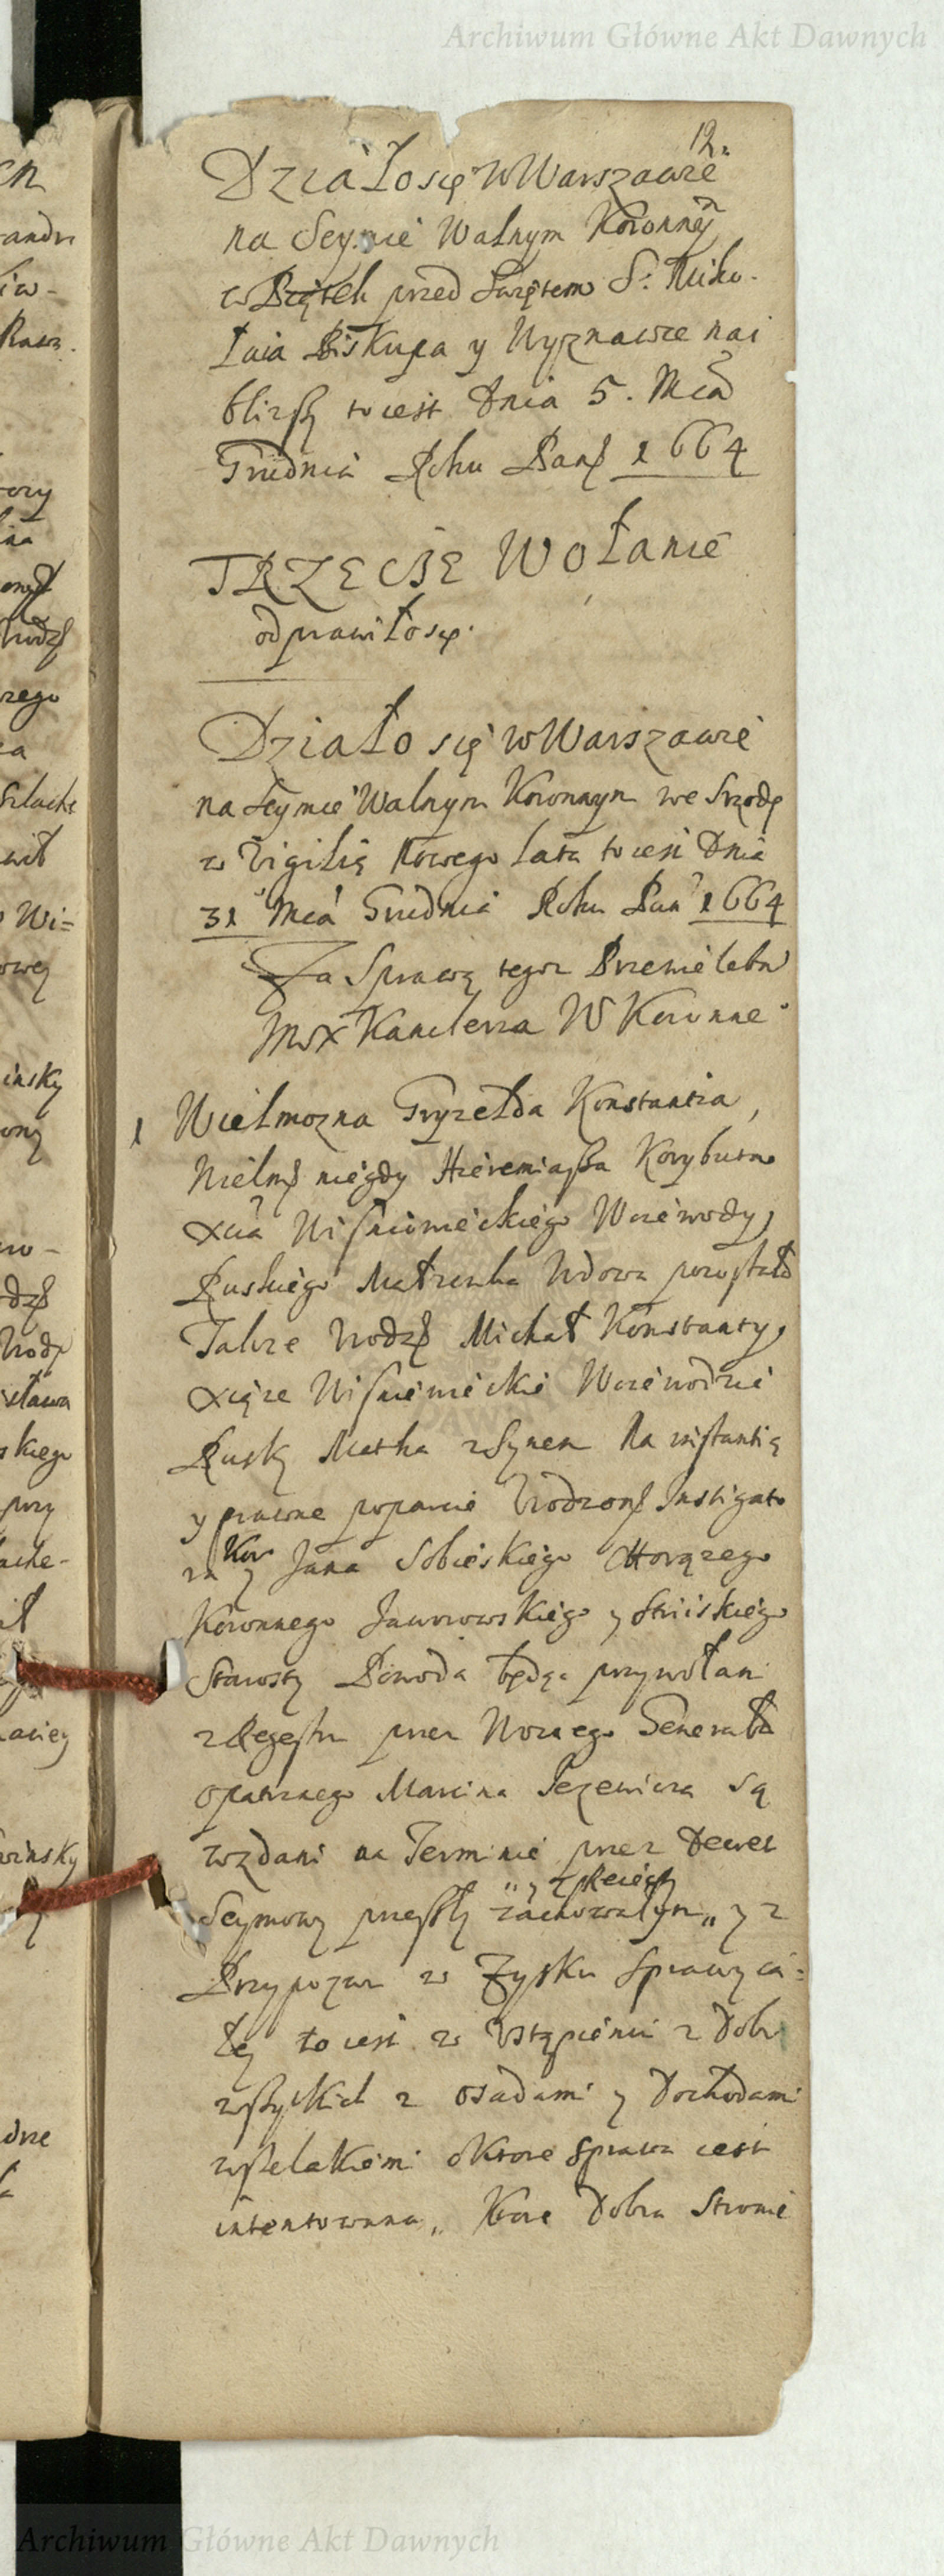 Archiwum Główne Akt Dawnych
12.
Działo się w Warszawie
na Seymie Walnym Koronny
w Piątek przed Świętem S: Miko-
łaia Biskupa y Wyznawce nai
blizszy to iest Dnia 5. Mca
Grudnia Roku Pans 1664
TRZECIE WOŁanie
odprawiło się.
Działo się w Warszawie
na Seymie Walnym Koronnym we Srzodę
w Vigilią Nowego Lata to iest Dnia
31 Mca Grudnia Roku Pan 1664
Za Sprawą tegoz Przewielebn
Mx Kanclerza W Koronne
1 Wielmozna Gryzełda Konstantia,
Wielmo niegdy Hieremiasza Korybuta
Xcia Wiśniowieckiego Woiewody
Ruskiego Małzonka Wdowa pozostała
Takze Urodz Michał Konstanty
Xiąze Wisniewieckie Woiewodzie
Rusky Matka z Synem Na instantią
y prawne poparcie Urodzon Instigato
ra Kor y Jana Sobieskiego Chorązego
Koronnego Jaworowskiego y Striiskiego
Starosty Powoda będąc przywołani
z Regestru przez Woznego Generała
opatrznego Marcina Jezewicza są
wzdani na Terminie przez Decret
Seymowy przeszły zachowalym „ y z
Przypozwu w Zysku Sprawy ca-
łey to iest w Ustąpieniu z Dobr
wszytkich z osadami y Dochodami
wszelakiemi o ktore Sprawa iest
intentowana „ Ktore Dobra Stronie
Archiwum Główne Akt Dawnych